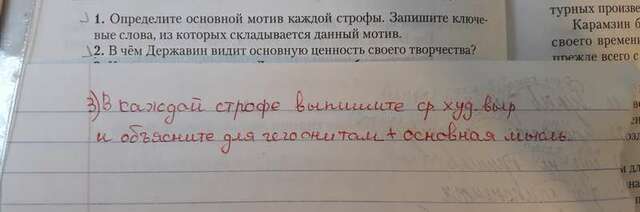 1. Определите основной мотив каждой строфы. Запишите ключе-
вые слова, из которых складывается данный мотив.
2. В чём Державин видит основную ценность своего творчества?
турных произве
Карамзин б
своего времени
прежде всего с
3) В каждой строфе выпишите ср худ выр
и объясните для чего они там + основная мысль.